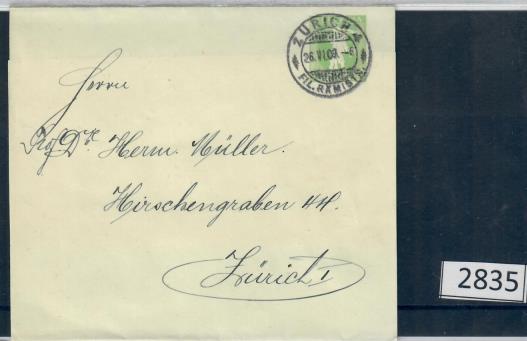 ZÜRICH 4
26.VI.09.–6
FIL. RÄMISTR.
Herrn
Prof. Dr Herm. Müller.
Hirschengraben 44.
Zürich I
2835